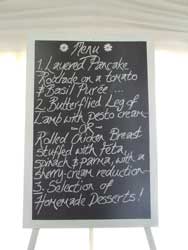 Menu
1. Layered Pancake
Roulade on a tomato
& Basil Puree ...
2. Butterflied Leg of
Lamb with pesto cream
-OR-
Rolled Chicken Breast
stuffed with feta,
spinach & parma, with a
sherry-cream reduction-
3. Selection of
Homemade Desserts!